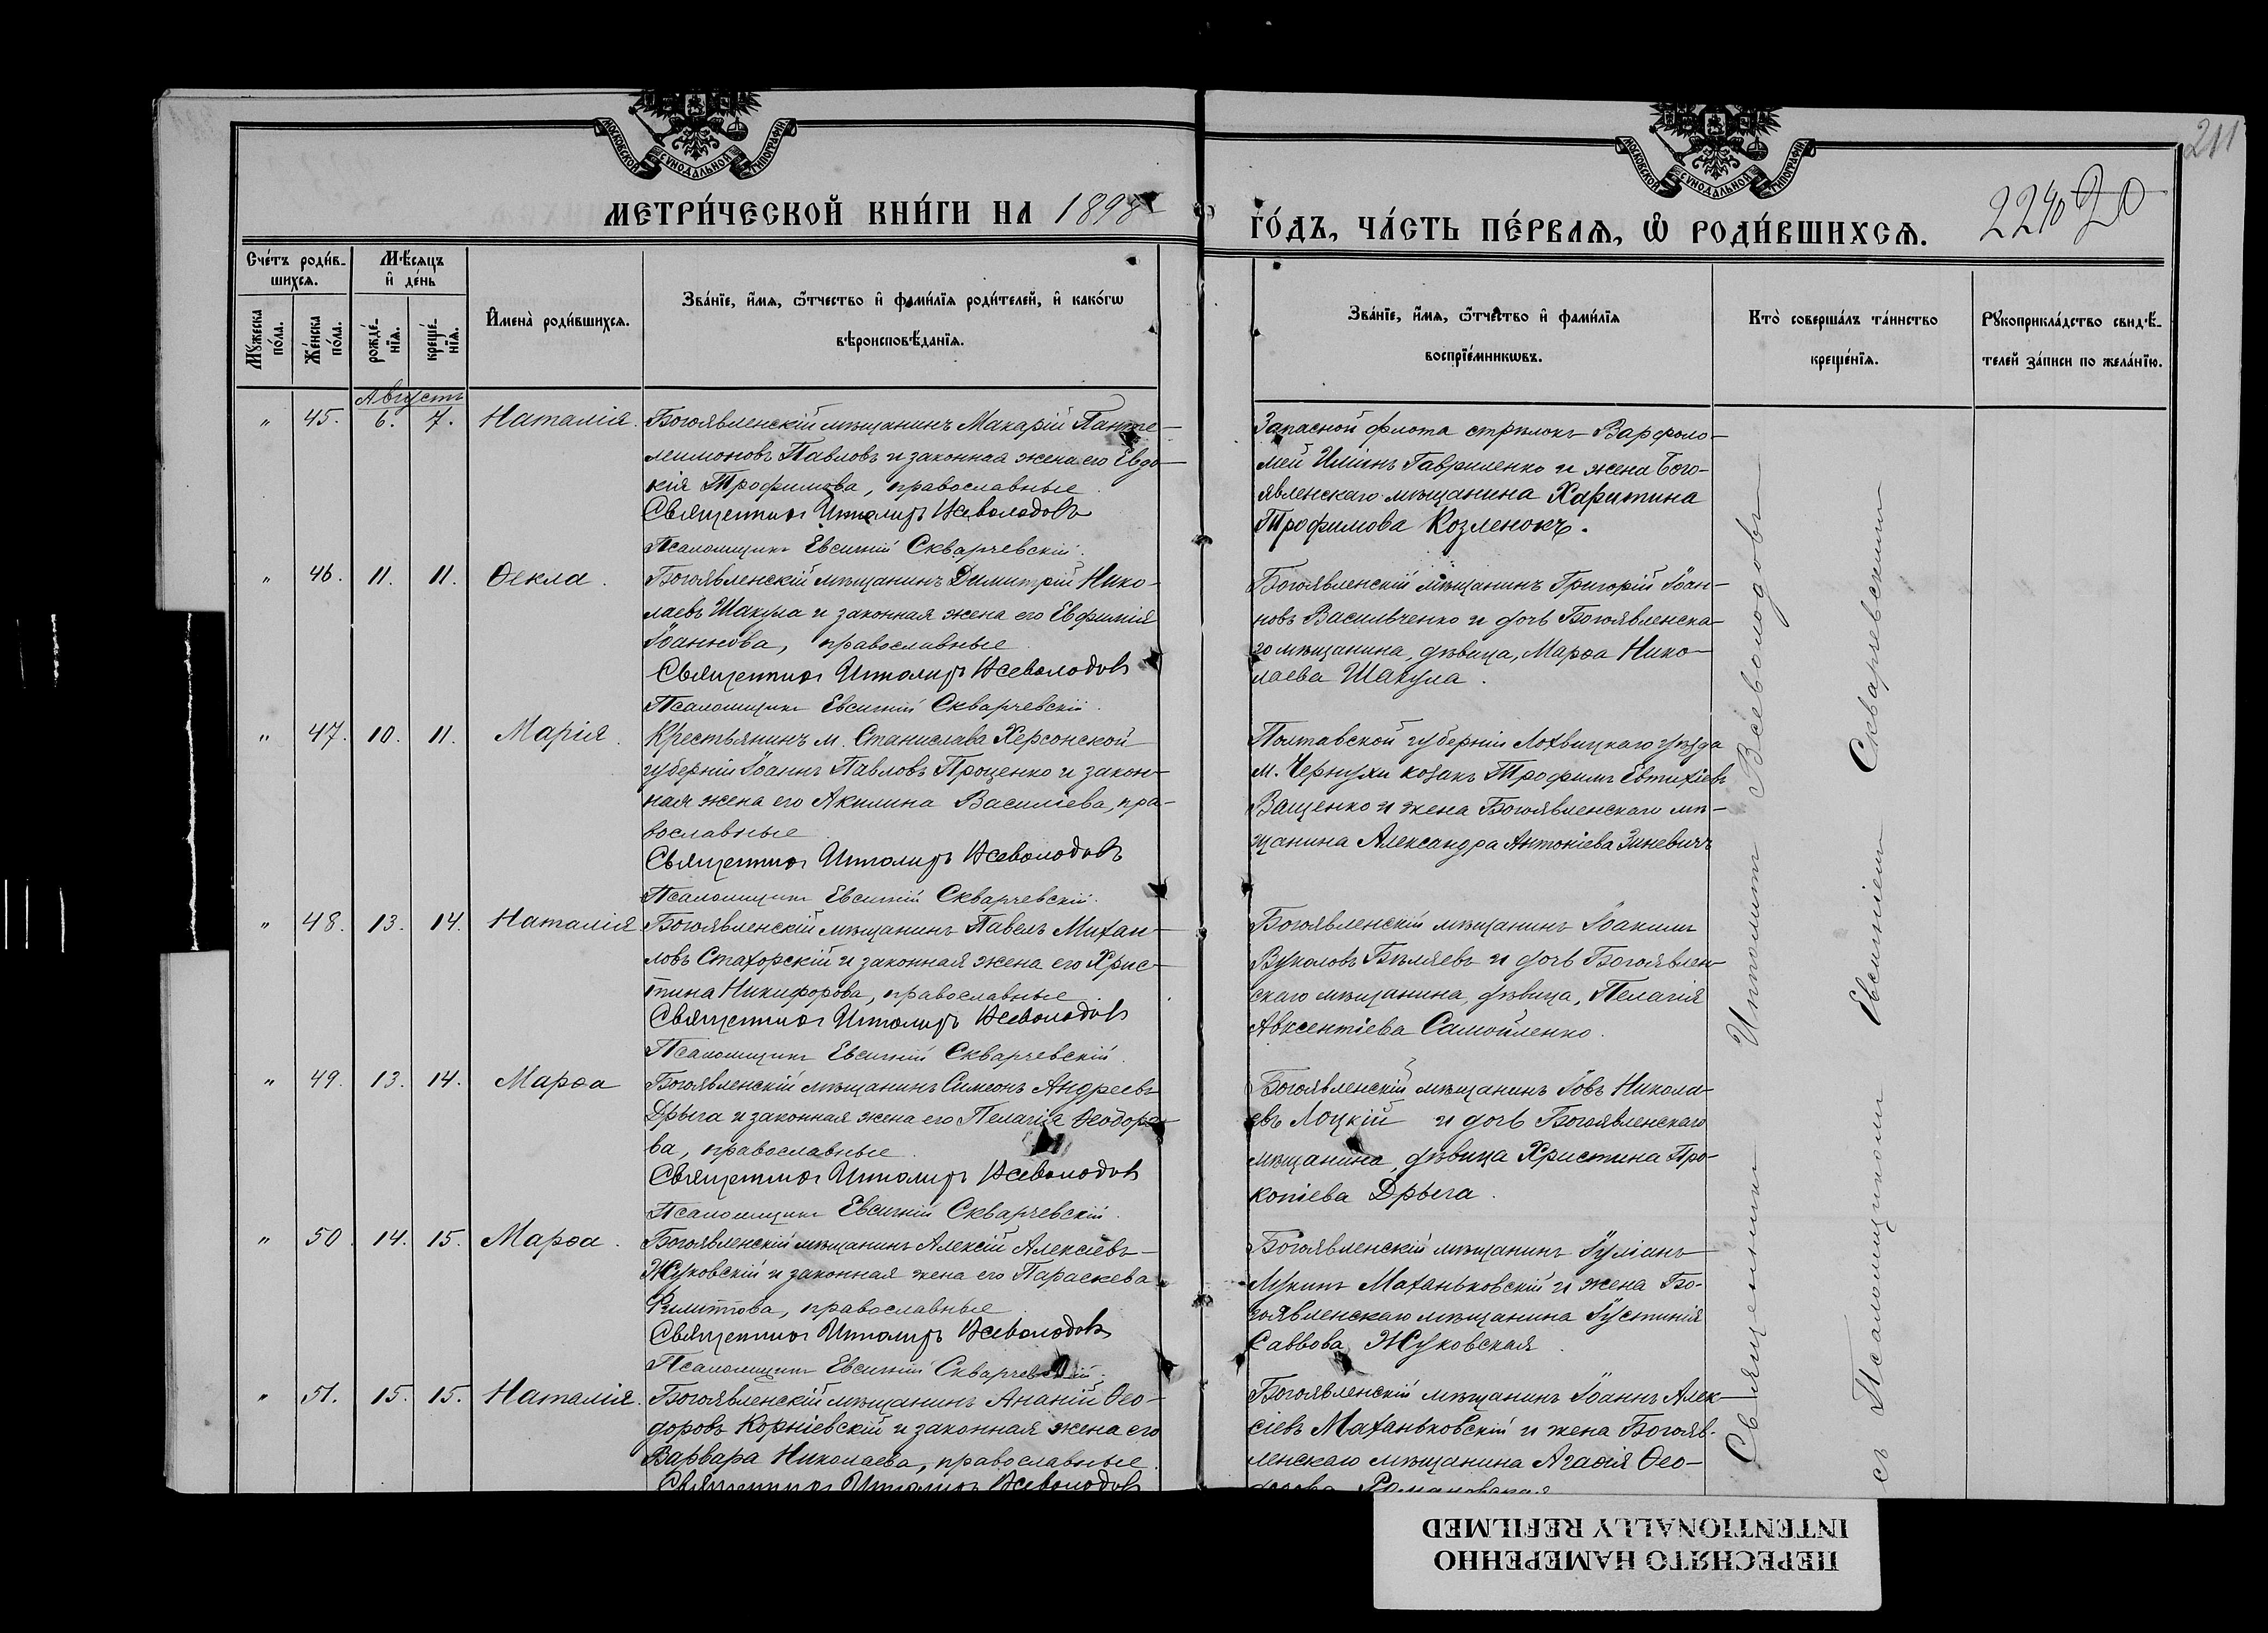 МОСКОВСКОЙ СѴНОДАЛЬНОЙ ТИПОГРАФІИ
МОСКОВСКОЙ СѴНОДАЛЬНОЙ ТИПОГРАФІИ
211
224 20
МЕТРИ́ЧЕСКОЙ КНИ́ГИ НА 1898
ГО́ДЪ, ЧА́СТЬ ПЕ́РВАѦ, Ѡ҆ РОДИ́ВШИХСѦ.
Сче́тъ роди́в-
шихсѧ.
Мѣ́сѧцъ
и҆ де́нь
Мꙋ́жеска
по́ла.
Же́нска
по́ла.
рожде́-
нїѧ.
креще́-
нїѧ.
И҆мена̀ роди́вшихсѧ.
Зва́нїе, и҆́мѧ, ѻ҆́тчество и҆ фами́лїѧ роди́телей, и҆ како́гѡ
вѣроисповѣ́данїѧ.
Зва́нїе, и҆́мѧ, ѻ҆́тчество и҆ фами́лїѧ
воспрїе́мникѡвъ.
Кто̀ соверша́лъ та́инство
креще́нїѧ.
Рꙋкоприкла́дство свидѣ́-
телей за́писи по жела́нїю.
Августъ
" 45. 6. 7. Наталія.
Богоявленскій мѣщанинъ Макарій Панте-
леимоновъ Павловъ и законная жена его Евдо-
кія Трофимова, православные.
Священникъ Ипполитъ Всеволодовъ
Псаломщикъ Евсигній Скварчевскій.
Запасной флота стрѣлокъ Варфоло-
мей Иліинъ Гавриленко и жена Бого-
явленскаго мѣщанина Харитина
Трофимова Козленокъ.
" 46. 11. 11. Ѳекла.
Богоявленскій мѣщанинъ Димитрій Нико-
лаевъ Шакула и законная жена его Евфимія
Іоаннова, православные
Священникъ Ипполитъ Всеволодовъ
Псаломщикъ Евсигній Скварчевскій.
Богоявленскій мѣщанинъ Григорій Іоан-
новъ Васильченко и дочь Богоявленска-
го мѣщанина, дѣвица, Марѳа Нико-
лаева Шакула.
" 47. 10. 11. Марія.
Крестьянинъ м. Станислава Херсонской
губерніи Іоаннъ Павловъ Проценко и закон-
ная жена его Акилина Василіева, пра-
вославные
Священникъ Ипполитъ Всеволодовъ
Псаломщикъ Евсигній Скварчевскій.
Полтавской губерніи Лохвицкаго уѣзда
м. Чернухи козакъ Трофимъ Евтихіевъ
Ващенко и жена Богоявленскаго мѣ-
щанина Александра Антоніева Зиневичъ
" 48. 13. 14. Наталія
Богоявленскій мѣщанинъ Павелъ Михаи-
ловъ Стахорскій и законная жена его Хрис-
тина Никифорова, православные.
Священникъ Ипполитъ Всеволодовъ
Псаломщикъ Евсигній Скварчевскій.
Богоявленскій мѣщанинъ Іоакимъ
Вуколовъ Бѣляевъ и дочь Богоявлен-
скаго мѣщанина, дѣвица, Пелагія
Авксентіева Самойленко.
" 49. 13. 14. Марѳа
Богоявленскій мѣщанинъ Симеонъ Андреевъ
Дрыга и законная жена его Пелагія Ѳеодоро-
ва, православные.
Священникъ Ипполитъ Всеволодовъ
Псаломщикъ Евсигній Скварчевскій.
Богоявленскій мѣщанинъ Іовъ Никола-
евъ Лоцкій и дочь Богоявленскаго
мѣщанина, дѣвица Христина Про-
копіева Дрыга.
" 50. 14. 15. Марѳа.
Богоявленскій мѣщанинъ Алексій Алексіевъ
Жуковскій и законная жена его Параскева
Филиппова, православные.
Священникъ Ипполитъ Всеволодовъ
Псаломщикъ Евсигній Скварчевскій.
Богоявленскій мѣщанинъ Іуліанъ
Лукинъ Маханьковскій и жена Бо-
гоявленскаго мѣщанина Іустинія
Саввова Жуковская.
" 51. 15. 15. Наталія.
Богоявленскій мѣщанинъ Ананій Ѳео-
доровъ Корніевскій и законная жена его
Варвара Николаева, православные.
Священникъ Ипполитъ Всеволодовъ
Богоявленскій мѣщанинъ Іоаннъ Алек-
сіевъ Маханьковскій и жена Богояв-
ленскаго мѣщанина Агаѳія Ѳео-
дорова Романовская
Священникъ Ипполитъ Всеволодовъ
съ Псаломщикомъ Евсигніемъ Скварчевскимъ
ПЕРЕСНЯТО НАМЕРЕННО
INTENTIONALLY REFILMED